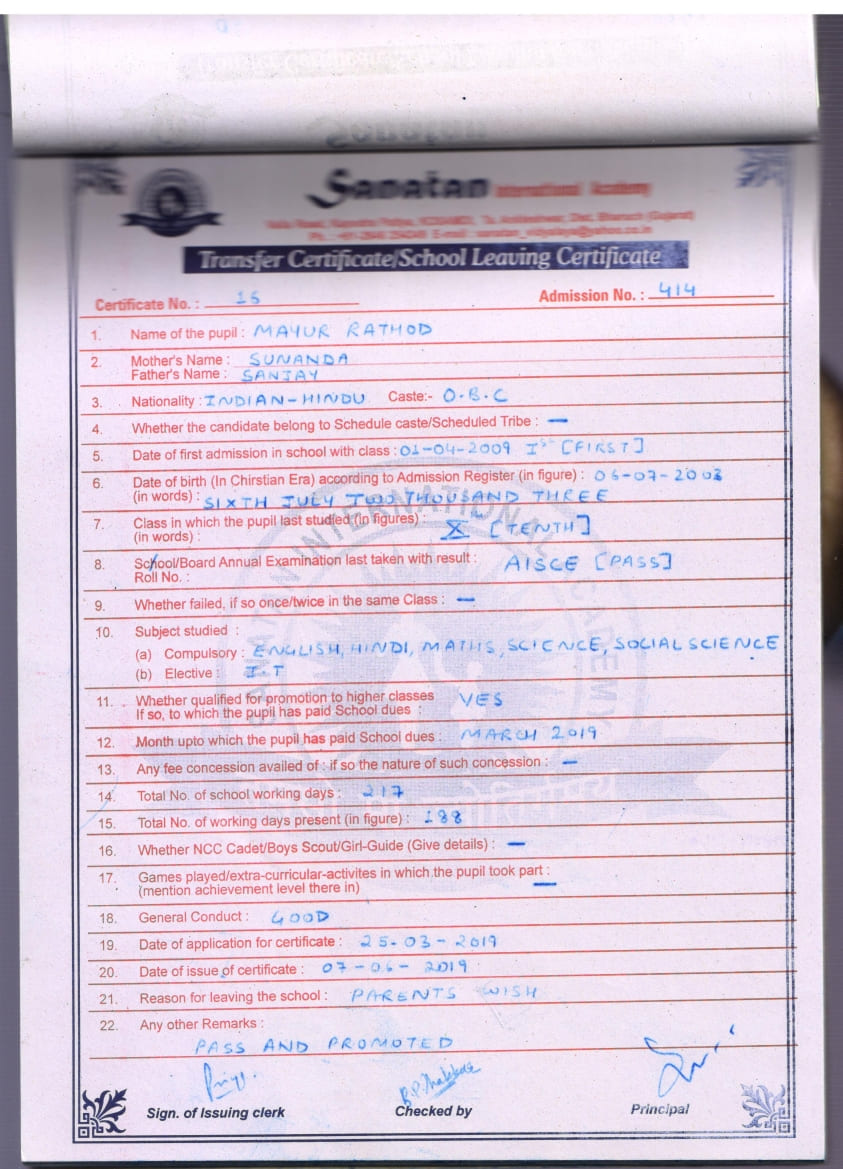 Sanatan International Academy
Transfer Certificate/School Leaving Certificate
Certificate No. : 15 Admission No. : 414
1. Name of the pupil : MAYUR RATHOD
2. Mother's Name : SUNANDA
Father's Name : SANJAY
3. Nationality : INDIAN-HINDU Caste:- O.B.C
4. Whether the candidate belong to Schedule caste/Scheduled Tribe : —
5. Date of first admission in school with class : 01-04-2009 Ist [FIRST]
6. Date of birth (In Chirstian Era) according to Admission Register (in figure) : 06-07-2003
(in words) : SIXTH JULY TWO THOUSAND THREE
7. Class in which the pupil last studied (in figures) : X [TENTH]
(in words) :
8. School/Board Annual Examination last taken with result : AISCE [PASS]
Roll No. :
9. Whether failed, if so once/twice in the same Class : —
10. Subject studied :
(a) Compulsory : ENGLISH, HINDI, MATHS, SCIENCE, SOCIAL SCIENCE
(b) Elective : I.T
11. Whether qualified for promotion to higher classes YES
If so, to which the pupil has paid School dues :
12. Month upto which the pupil has paid School dues : MARCH 2019
13. Any fee concession availed of : if so the nature of such concession : —
14. Total No. of school working days : 217
15. Total No. of working days present (in figure) : 188
16. Whether NCC Cadet/Boys Scout/Girl-Guide (Give details) : —
17. Games played/extra-curricular-activites in which the pupil took part :
(mention achievement level there in) —
18. General Conduct : GOOD
19. Date of application for certificate : 25-03-2019
20. Date of issue of certificate : 07-06-2019
21. Reason for leaving the school : PARENTS WISH
22. Any other Remarks :
PASS AND PROMOTED
Sign. of Issuing clerk Checked by Principal
SANATAN INTERNATIONAL ACADEMY